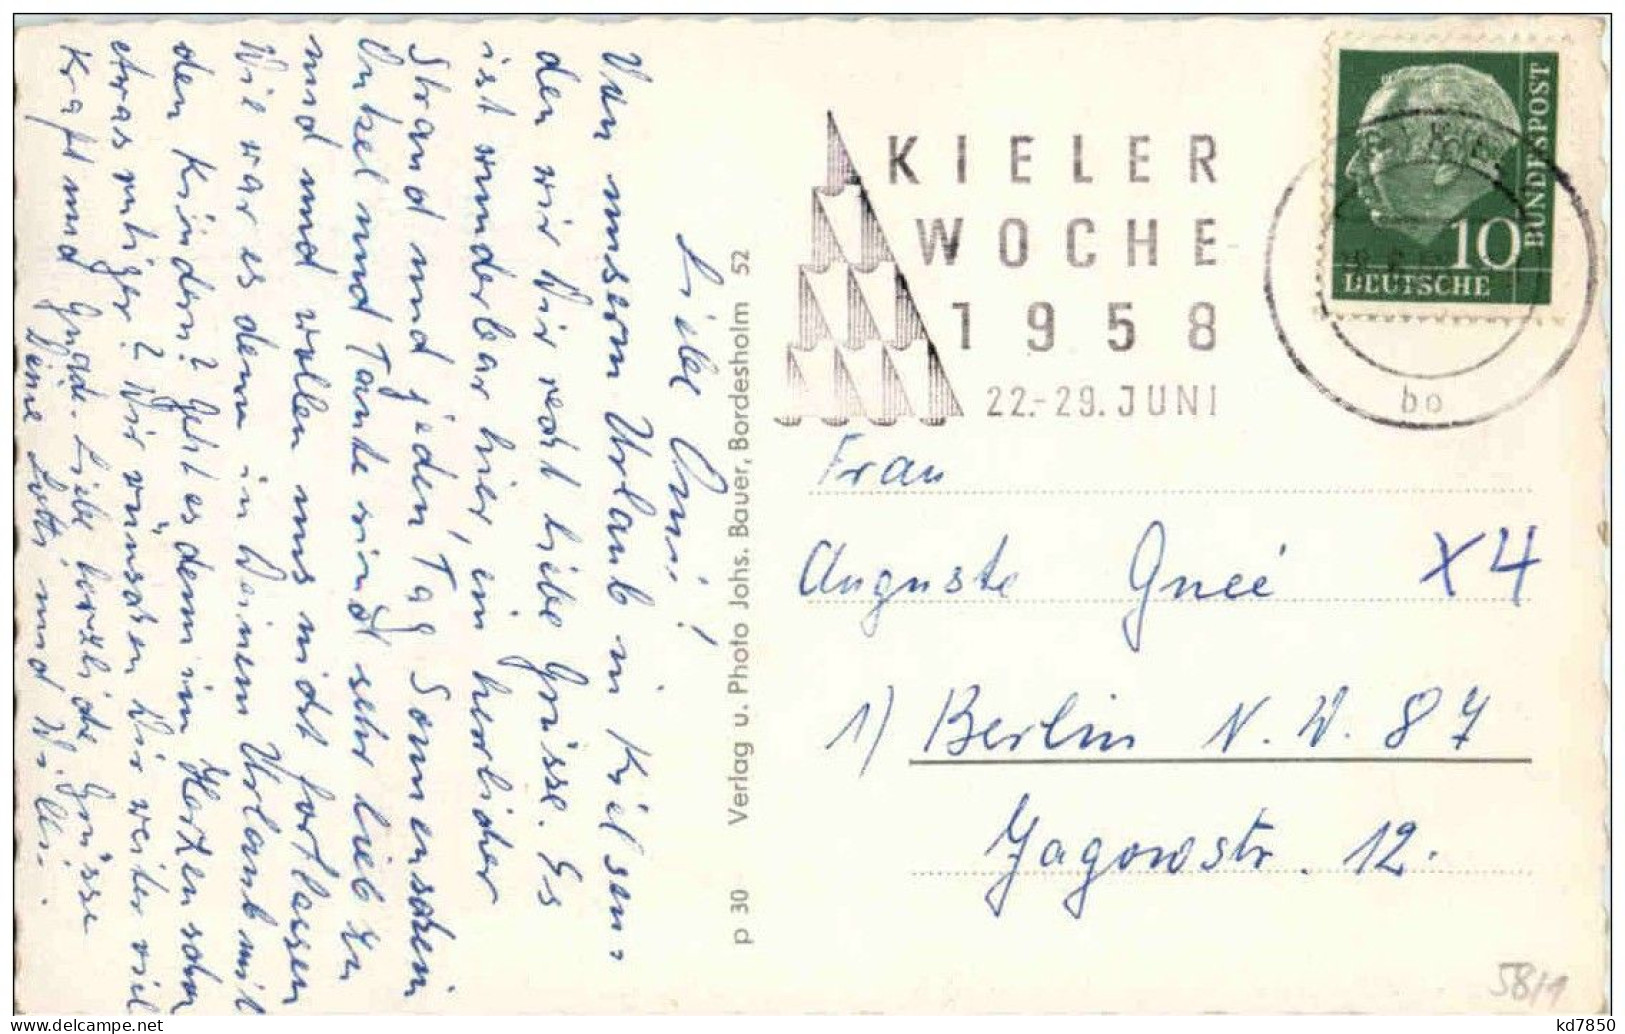 Liebe Omi!
Von unserm Urlaub in Kiel sen-
den wir Dir recht liebe Grüsse. Es
ist wunderbar hier, ein herrlicher
Strand und jeden Tag Sonnenschein
Onkel und Tante sind sehr lieb zu
uns und wollen uns nicht fortlassen
Wie war es denn in Deinem Urlaub mit
den Kindern? Geht es denn im Herzen schon
etwas ruhiger? Wir wünschen Dir weiter viel
Kraft und Gnade. Liebe herzliche Grüsse
Deine Lotti und Willi.
p 30 Verlag u. Photo Johs. Bauer, Bordesholm 52
KIELER
WOCHE
1958
22.-29. JUNI
10
DEUTSCHE
BUNDESPOST
bo
Frau
Auguste Gneé X4
1) Berlin N. W. 87
Jagowstr. 12.
58/1
www.delcampe.net
kd7850